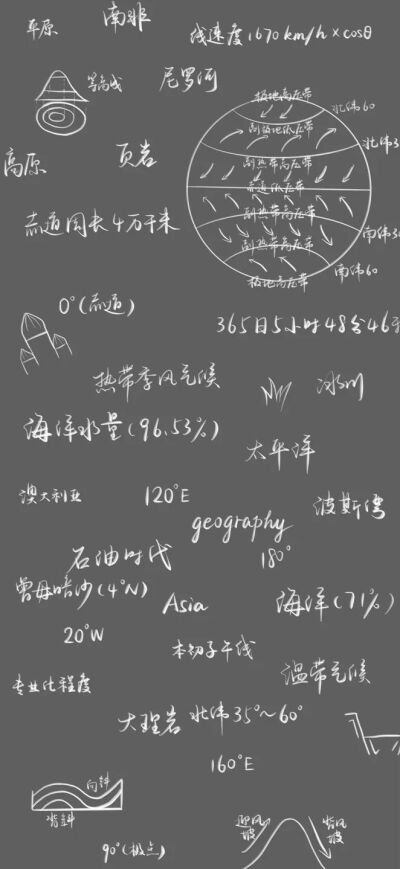 平原
南非
线速度1670km/h×cosθ
等高线
尼罗河
极地高压带
北纬60
副极地低压带
副热带高压带
赤道低压带
副热带高压带
副热带高压带
极地高压带
北纬3
南纬3
南纬60
高原
页岩
赤道周长4万千米
0°(赤道)
365日5小时48分46
热带季风气候
冰川
海洋水量(96.53%)
太平洋
澳大利亚
120°E
波斯湾
geography
石油时代
180°
曾母暗沙(4°N)
Asia
海洋(71%)
20°W
本初子午线
温带气候
专业化程度
大理岩
北纬35°~60°
160°E
向斜
背斜
迎风坡
背风坡
90°(极点)